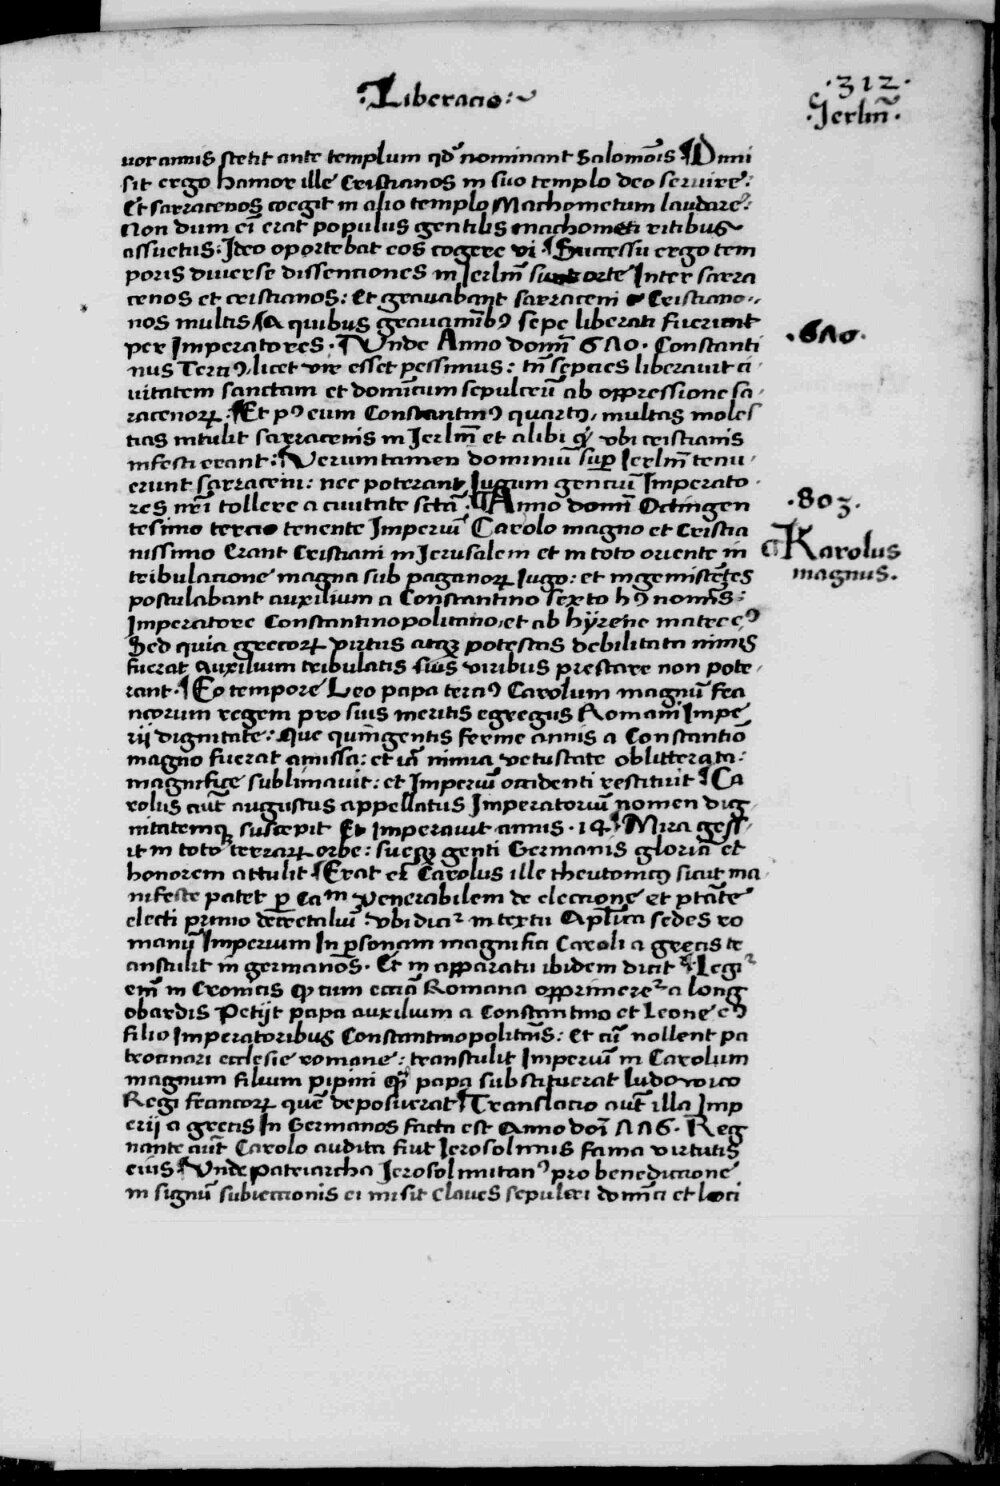 ·312·
·Liberacio:~
·Jerlm̄·
uor annis stetit ante templum qd̕ nominant Salomōis ¶ Dimi
sit ergo hamor ille Cristianos in suo templo deo seruire:
Et sarracenos coegit in alio templo Machometum laudare:
Non dum em̄ erat populus gentilis machometi ritibus
assuetus: Ideo oportebat eos cogere vi · ¶ Successu ergo tem
poris diuerse dissentiones in Jerlm̄ sunt orte Inter sarra
cenos et cristianos: Et grauabant sarraceni Cristiano-
nos multis ¶ A quibus grauaminib⁹ sepe liberati fuerunt
per Imperatores · ¶ Vnde Anno domī 6Λ0 · Constanti
·6Λ0·
nus Terci⁹, licet vir esset pessimus: tn̄ septies liberauit ci
uitatem sanctam et domīcum sepulcrū ab oppressione sa,
racenorꝝ · ¶ Et p⁹ eum Constantin⁹ quart⁹, multas moles
tias intulit sarracenis in Jerlm̄ et alibi vbi cristianis
infesti erant: ¶ Verumtamen dominiū sup̄ Jerlm̄ tenu,
erunt sarraceni: nec poterant Jugum gentiū Imperato,
res nr̄i tollere a ciuitate sctā · ¶ Anno domī Octingen
·803·
tesimo tercio tenente Imperiū Carolo magno et Cristia
nissimo Erant Cristiani in Jerusalem et in toto oriente in
¶ Karolus
magnus.
tribulatione magna sub paganorꝝ Jugo: et ingemiscētes
postulabant auxilium a Constantino sexto h⁹ nomīs:
Imperatore Constantinopolitano, et ab hyrene matre e⁹
Sed quia grecorꝝ virtus atqꝫ potestas debilitata nimis
fuerat Auxilium tribulatis suis viribus prestare non pote,
rant · ¶ Eo tempore Leo papa terci⁹ Carolum magnū fra
ncorum regem pro suis meritis egregiis Romani Impe
rii dignitate: Que quīngentis ferme annis a Constantīo
magno fuerat amissa: et iā nimia vetustate oblitterata:
magnifice sublimauit: et Imperiū occidenti restituit ¶ Ca
rolus aut̄ augustus appellatus Imperatoriū nomen dig,
nitatemqꝫ suscepit Et Imperauit annis · 14 ¶ Mira gess,
it in toto terrarꝝ orbe: sueqꝫ genti Germanis gloriā et
honorem attulit ¶ Erat em̄ Carolus ille theutonic⁹ sicut ma,
nifeste patet ꝑ Caᵐ venerabilem de electione et ptāte
electi primo decretaliū: vbi dicit̕ in textu Apl̄ica sedes ro
manū Imperium In ꝑsonam magnifici Caroli a grecis tr
anstulit in germanos · Et in apparatu ibidem dicit̕ · Legit̕
em̄ in Cronicis cum eccīa Romana opprimeret̕ a long
obardis Petijt papa auxilium a Constantino et Leone e⁹
filio Imperatoribus Constantinopolitanīs: Et cū nollent pa
trocinari ecclesie romane: transtulit Imperiū in Carolum
magnum filium pipini papa substituerat ludowico
Regi francorꝝ quē deposuerat ¶ Translatio aut̄ illa Imp
erij a grecis In Germanos facta est Anno doī ΛΛ6 · Reg
nante aut̄ Carolo audita fuit Jerosolimis fama virtutis
eius · Vnde patriarcha Jerosolimitan⁹ pro benedictione
in signū subiectionis ei misit Claues sepulcri domīci et loci